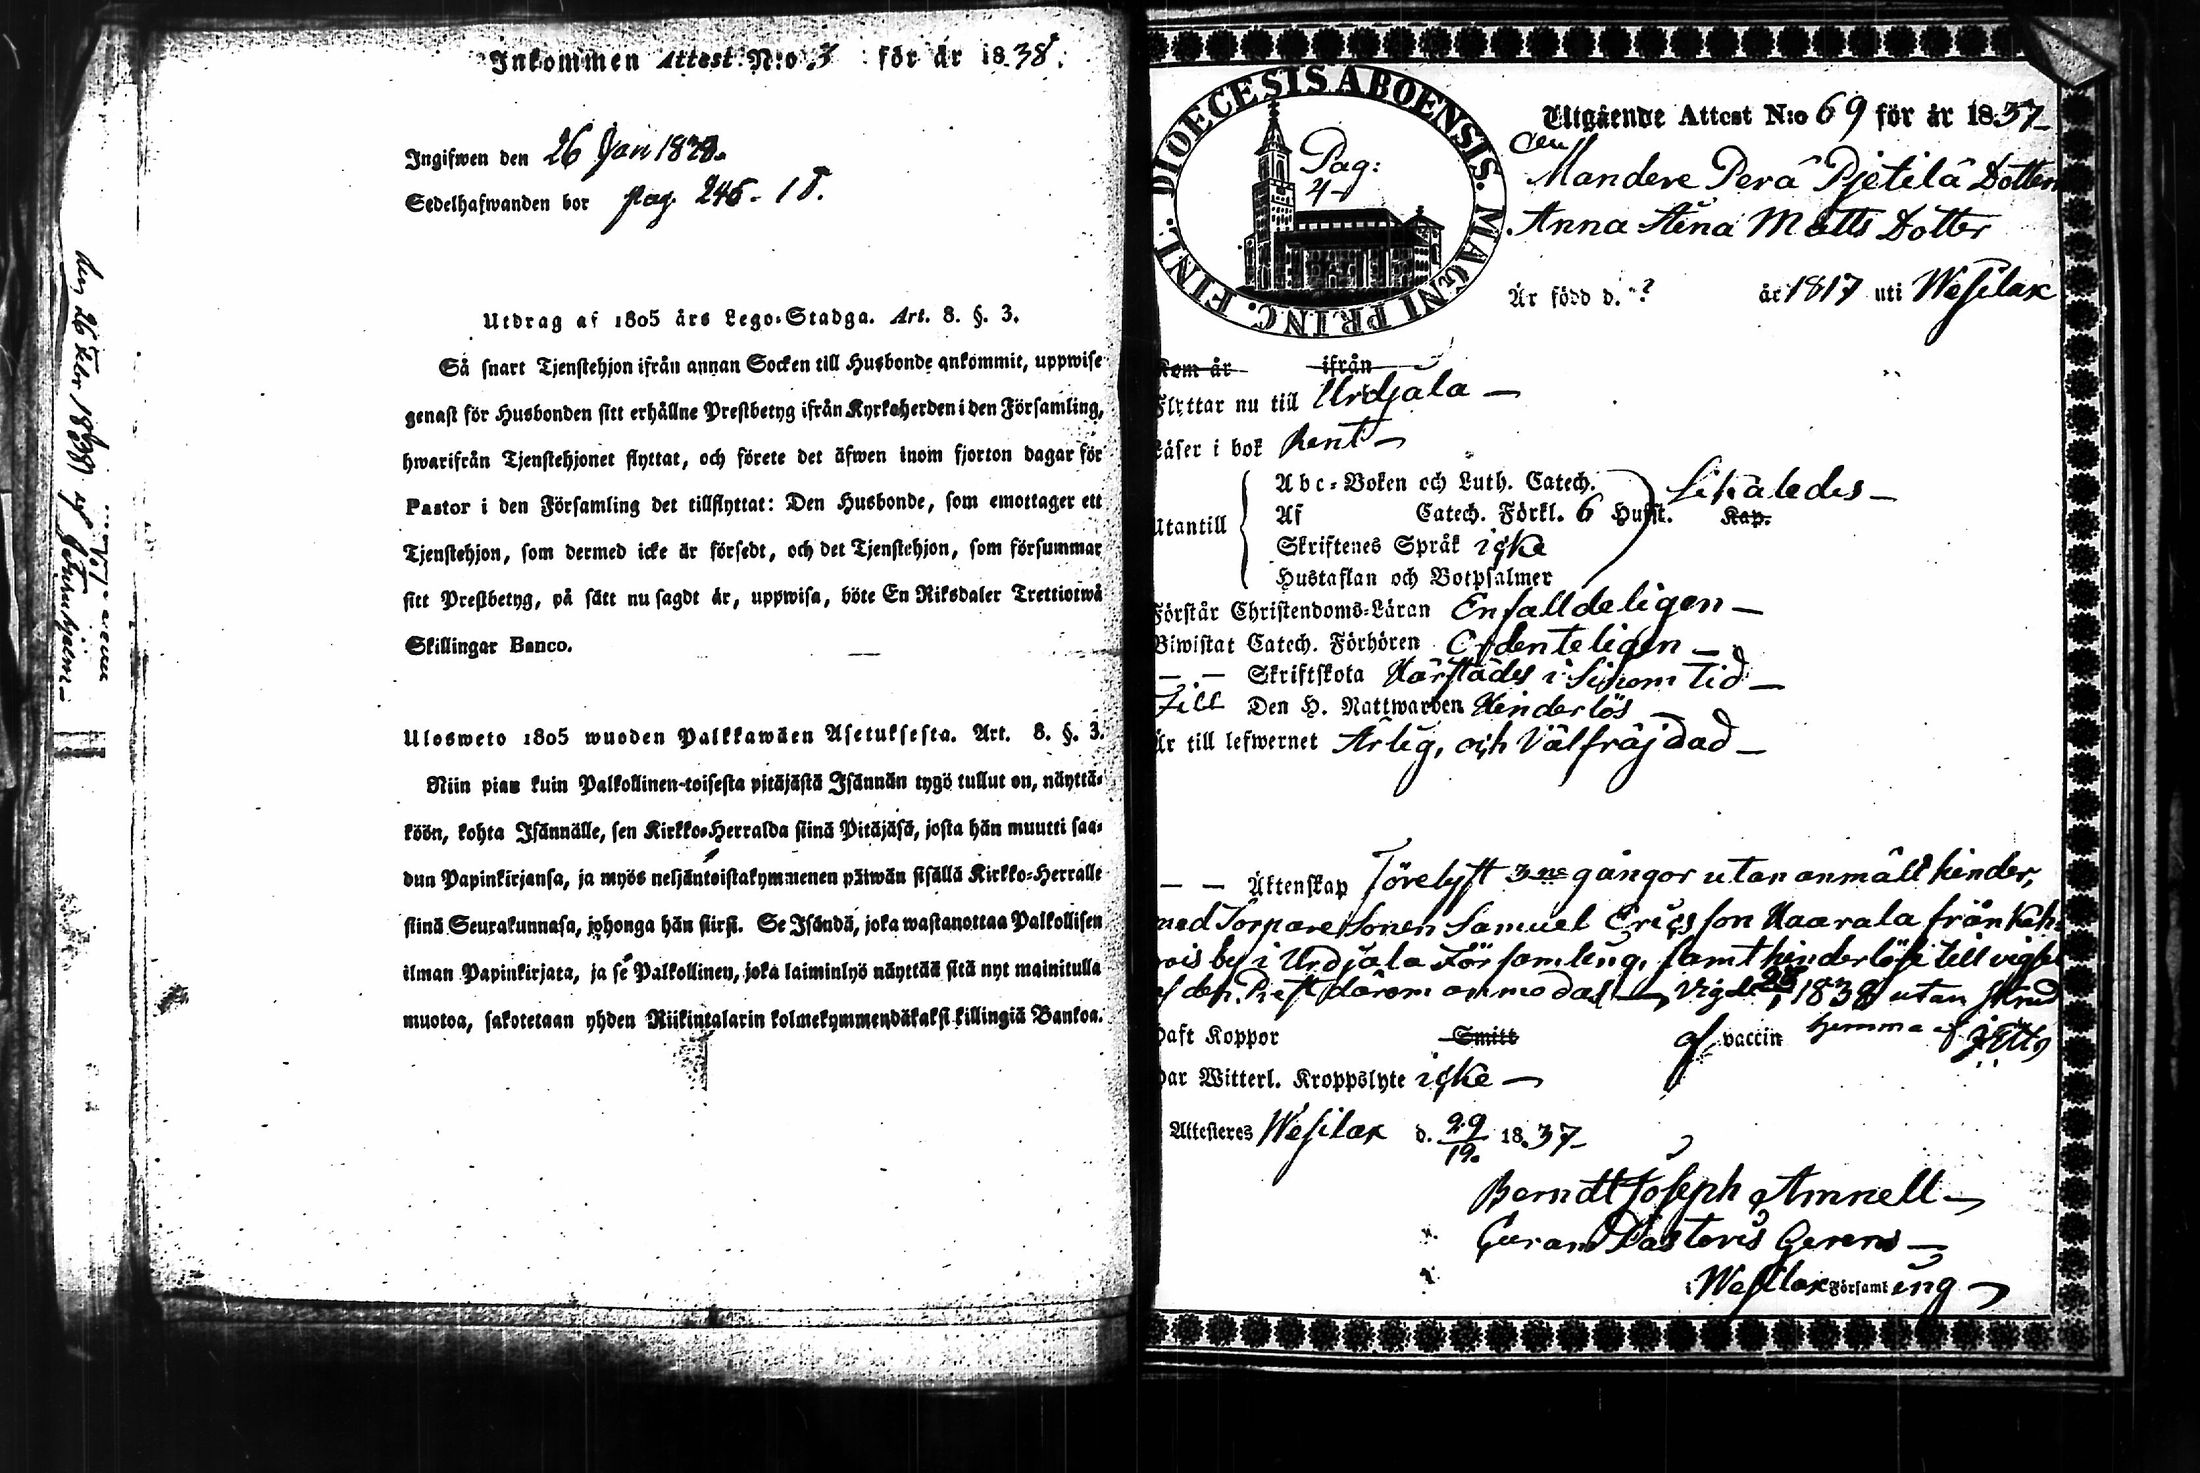 Inkommen Attest N:o 3 för år 1838.
Ingifwen den 26 Jan 1838.
Sedelhafwanden bor pag. 246.
Utdrag af 1805 års Lego-Stadga. Art. 8. §. 3.
Så snart Tjenstehjon ifrån annan Socken till Husbonde ankommit, uppwise
genast för Husbonden sitt erhållne Prestbetyg ifrån Kyrkoherden i den Församling,
hwarifrån Tjenstehjonet flyttat, och förete det äfwen inom fjorton dagar för
Pastor i den Församling det tillflyttat: Den Husbonde, som emottager ett
Tjenstehjon, som dermed icke är försedt, och det Tjenstehjon, som försummar
sitt Prestbetyg, på sätt nu sagdt är, uppwisa, böte En Riksdaler Trettiotwå
Skillingar Banco.
Ulosweto 1805 wuoden Palkkawäen Asetuksesta. Art. 8. §. 3.
Niin pian kuin Palkollinen toisesta pitäjästä Isännän tygö tullut on, näyttä-
köön, kohta Isännälle, sen Kirkko-Herralda siinä Pitäjäsä, josta hän muutti saa-
dun Papinkirjansa, ja myös neljäntoistakymmenen päiwän sisällä Kirkko-Herralle
siinä Seurakunnasa, johonga hän siirsi. Se Isändä, joka wastanottaa Palkollisen
ilman Papinkirjata, ja se Palkollinen, joka laiminlyö näyttää sitä nyt mainitulla
muotoa, sakotetaan yhden Riikintalarin kolmekymmendäkaksi killingiä Bankoa.
DIOECESIS ABOENSIS. MAGNI PRINC. FINL.
Pag:
4
Utgående Attest N:o 69 för år 1837
Mandere Perä Pjetilä Dottern
Anna Stina Matts Dotter
Är född d. ? år 1817 uti Wesilax
Kom år ifrån
Flyttar nu till Urdjala
Läser i bok Rent
Utantill
Abc-Boken och Luth. Catech. Likaledes
Af Catech. Förkl. 6 Hufst. Kap.
Skriftenes Språk icke
Hustaflan och Botpsalmer
Förstår Christendoms-Läran Enfaldeligen
Biwistat Catech. Förhören Ordenteligen
Skriftskola Härstädes i sinom tid
Till Den H. Nattwarden Hinderlös
Är till lefwernet Ärlig, och Välfräjdad
Äktenskap Förelyst 3ne gångor utan anmält hinder,
med Torpare Sonen Samuel Ericsson Haarala från
by i Urdjala Församling, samt hinderlös till vigsel
af den Prest därom anmodas Vigde 1838 utan
hemma af
Haft Koppor Smitt af vaccin
Har Witterl. Kroppslyte icke
Attesteres Wesilax d. 29/12. 1837
Berndt Joseph Amnell
Curam Pastoris Gerens
i Wesilax Församling